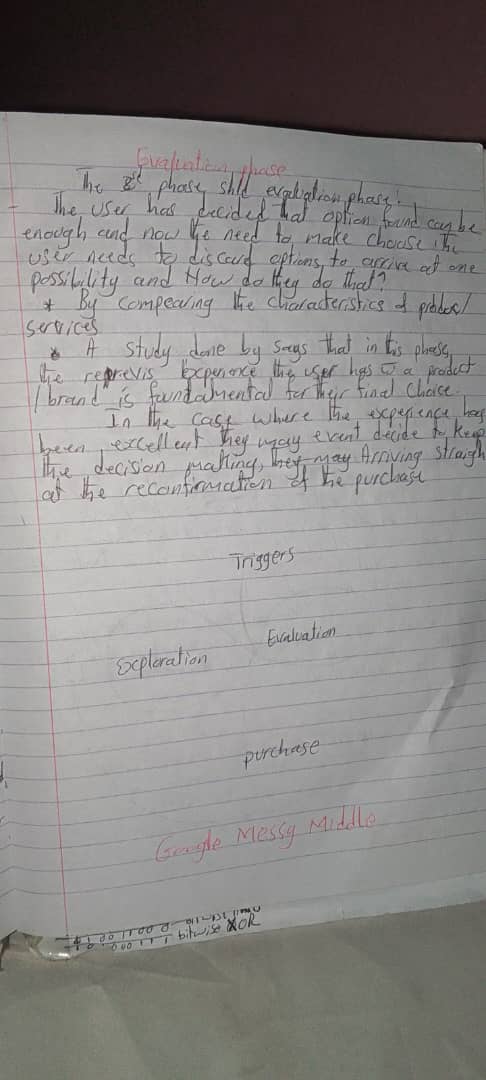 Evaluation phase
The 2d phase shld evaluation phase!
The user has decided that option found can be
enough and now the need to make choose the
user needs to discard options, to arrive at one
possibility and How do they do that?
* By compearing the characteristics of
services
* A study done by says that in this phase,
the experience the user has a product
/ brand is foundamental for their final choice.
In the case where the experience has
been excellent they may event decide to keep
the decision making, they may Arriving straigh
at the reconfirmation of the purchase
Triggers
Evaluation
Exploration
purchase
Google Messy Middle
bitwise XOR